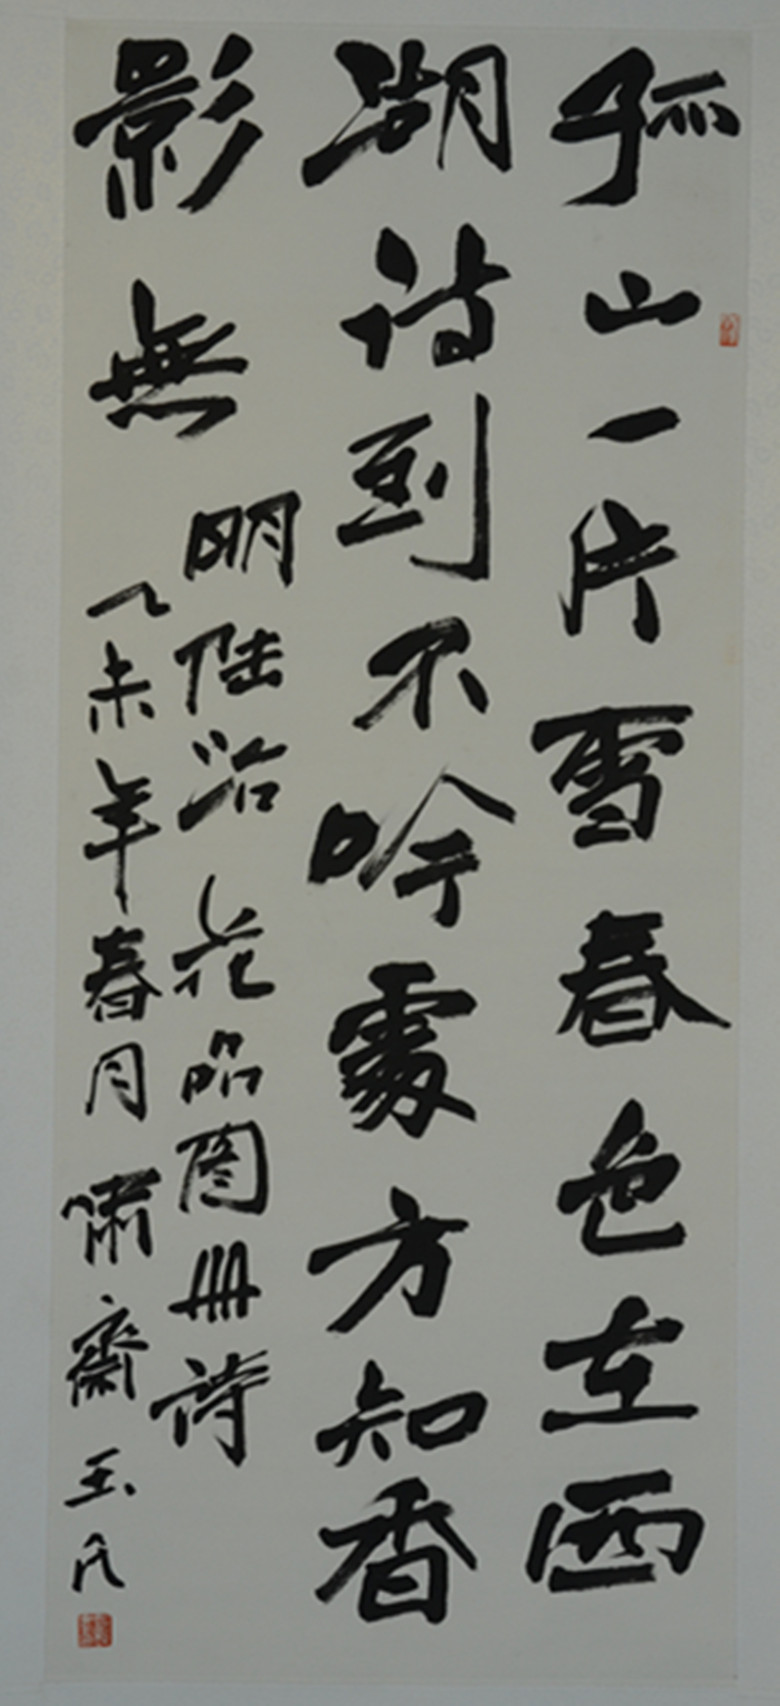 孤山一片雪春色在西
湖诗到不吟處方知香
影無
明陆治花品图册诗
乙未年春月啸齋玉